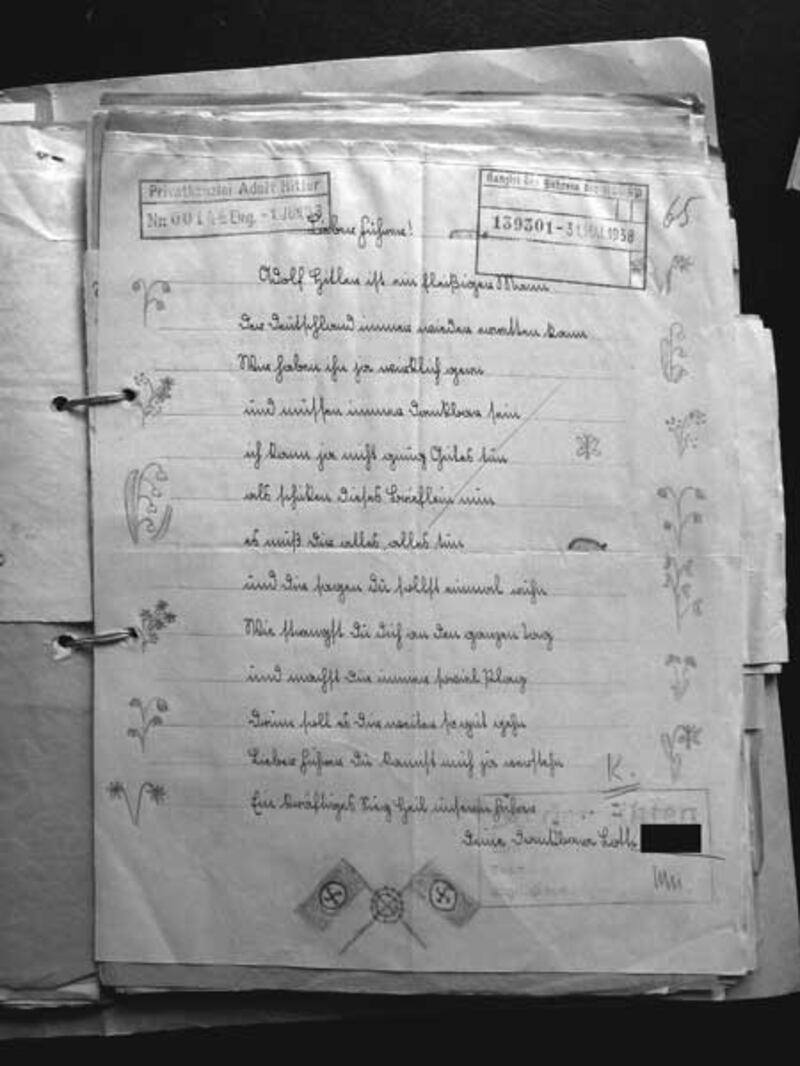 Privatkanzlei Adolf Hitler
Kanzlei des Führers der NSDAP
Nr. 001 Eing. -1. JUN. 38
139301-31. MAI 1938
65
Lieber Führer!
Adolf Hitler ist ein fleißiger Mann
der Deutschland immer wieder erretten kann
Wir haben ihn ja wirklich gern
und müssen immer dankbar sein
ich kann ja nicht genug Gutes tun
als schiken dieses Brieflein nun
es muß dir alles, alles tun
und dir sagen du sollst einmal ruhn
Wie strengst du dich an den ganzen Tag
und machst dir immer soviel Plag
Drum soll es dir weiter so gut gehn
Lieber Führer du kannst mich ja verstehn
K.
Ein kräftiges Sieg Heil unserem Führer
Deine dankbare Lotte